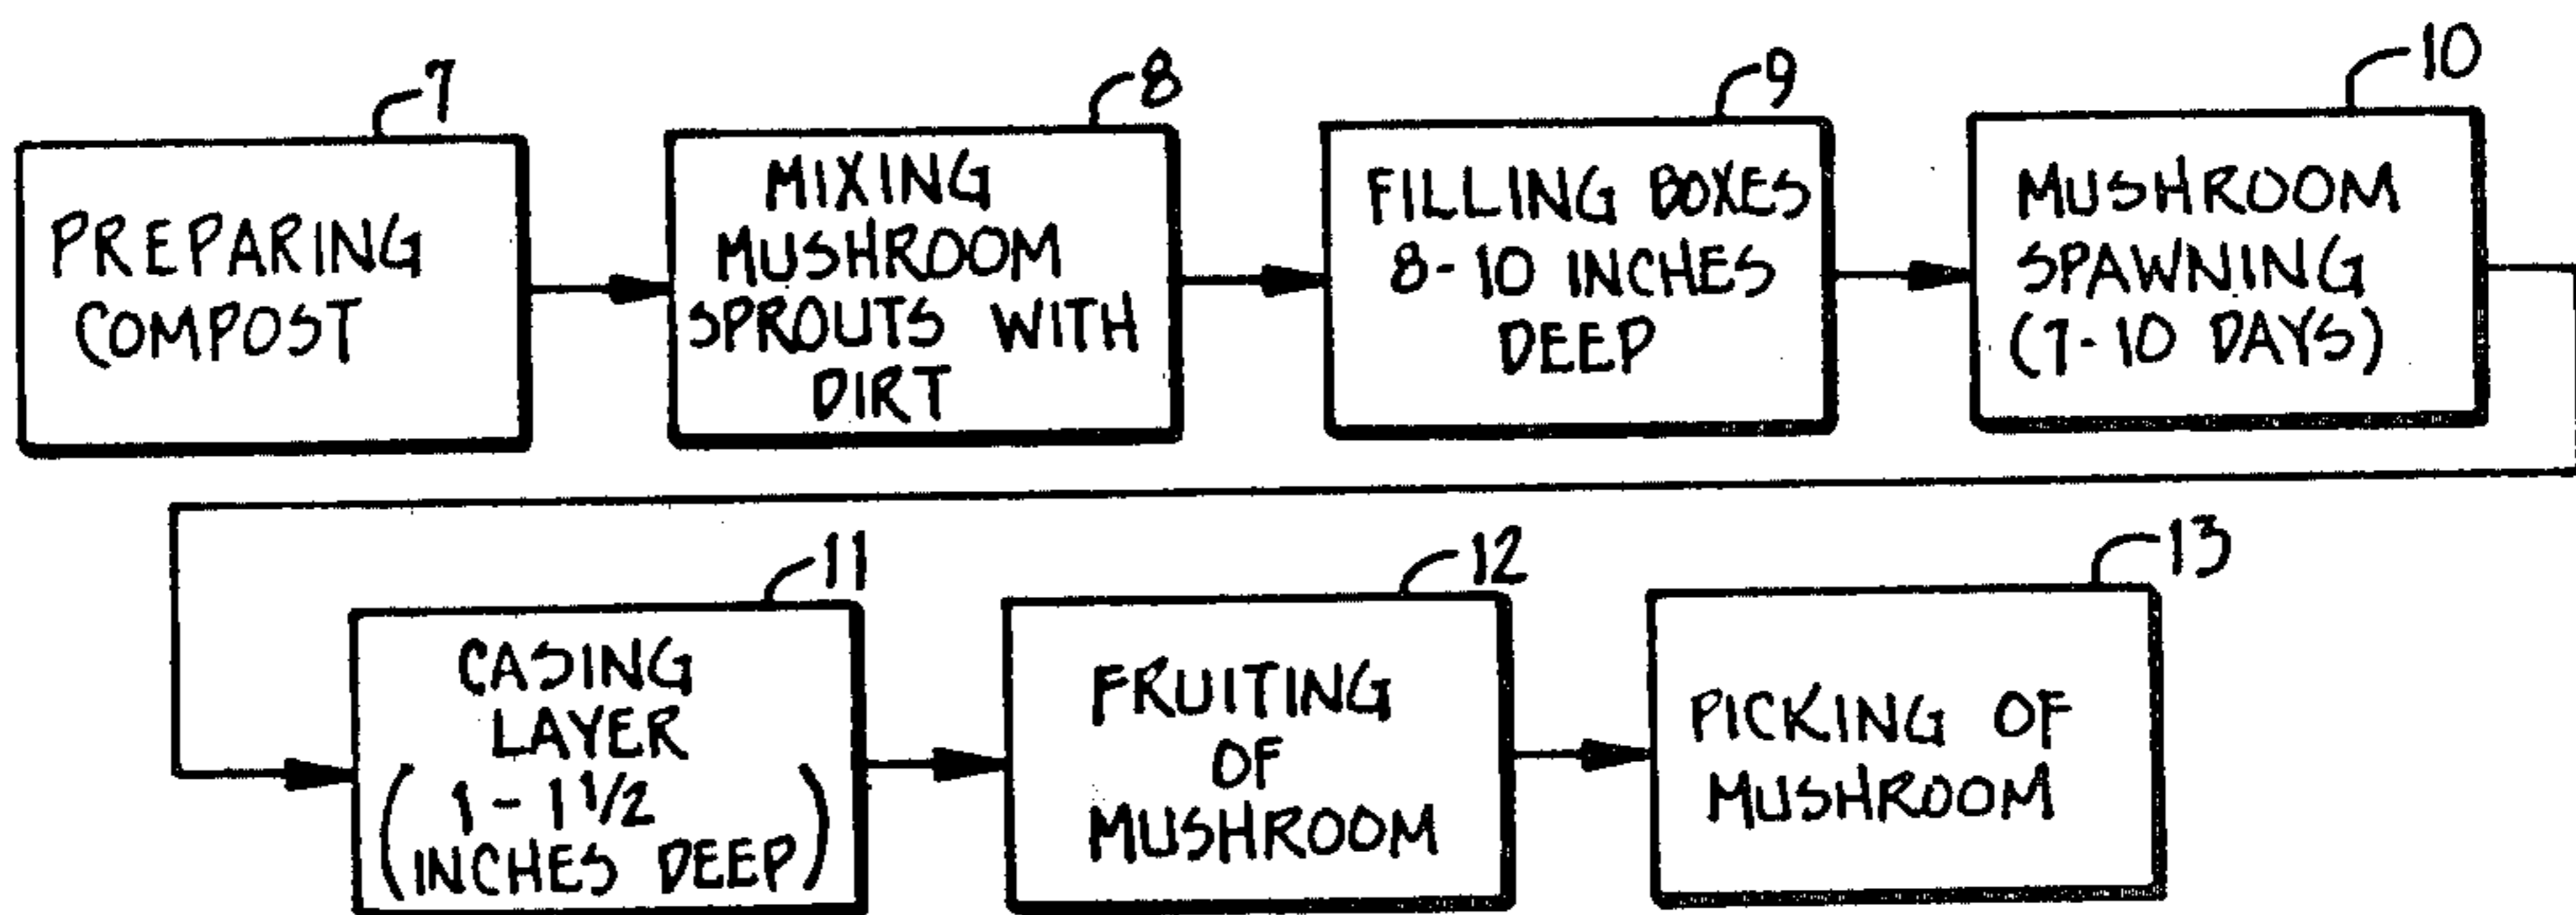 7
PREPARING
COMPOST
8
MIXING
MUSHROOM
SPROUTS WITH
DIRT
9
FILLING BOXES
8-10 INCHES
DEEP
10
MUSHROOM
SPAWNING
(7-10 DAYS)
11
CASING
LAYER
(1 - 1 1/2
INCHES DEEP)
12
FRUITING
OF
MUSHROOM
13
PICKING OF
MUSHROOM